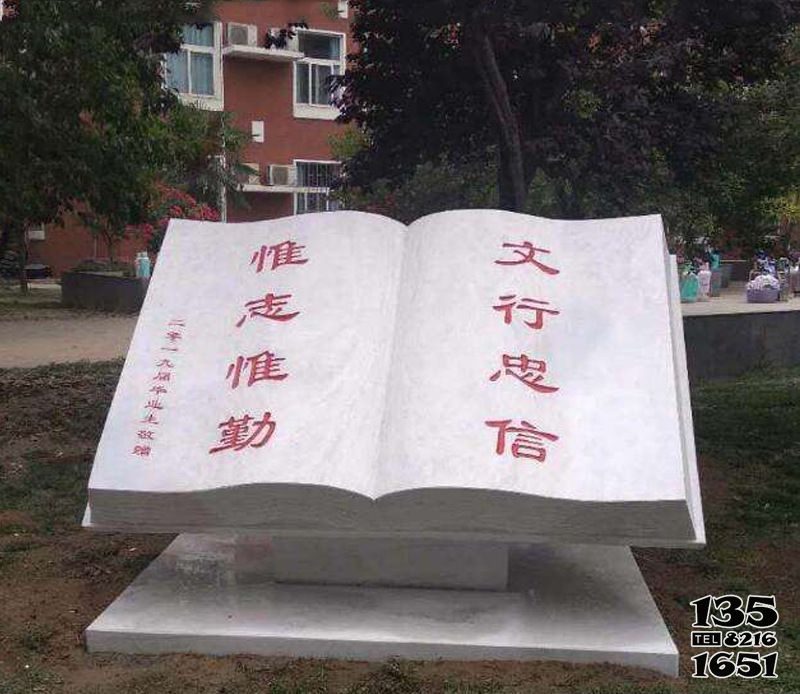 文行忠信
惟志惟勤
二零一九届毕业生敬赠
135
TEL 8216
1651